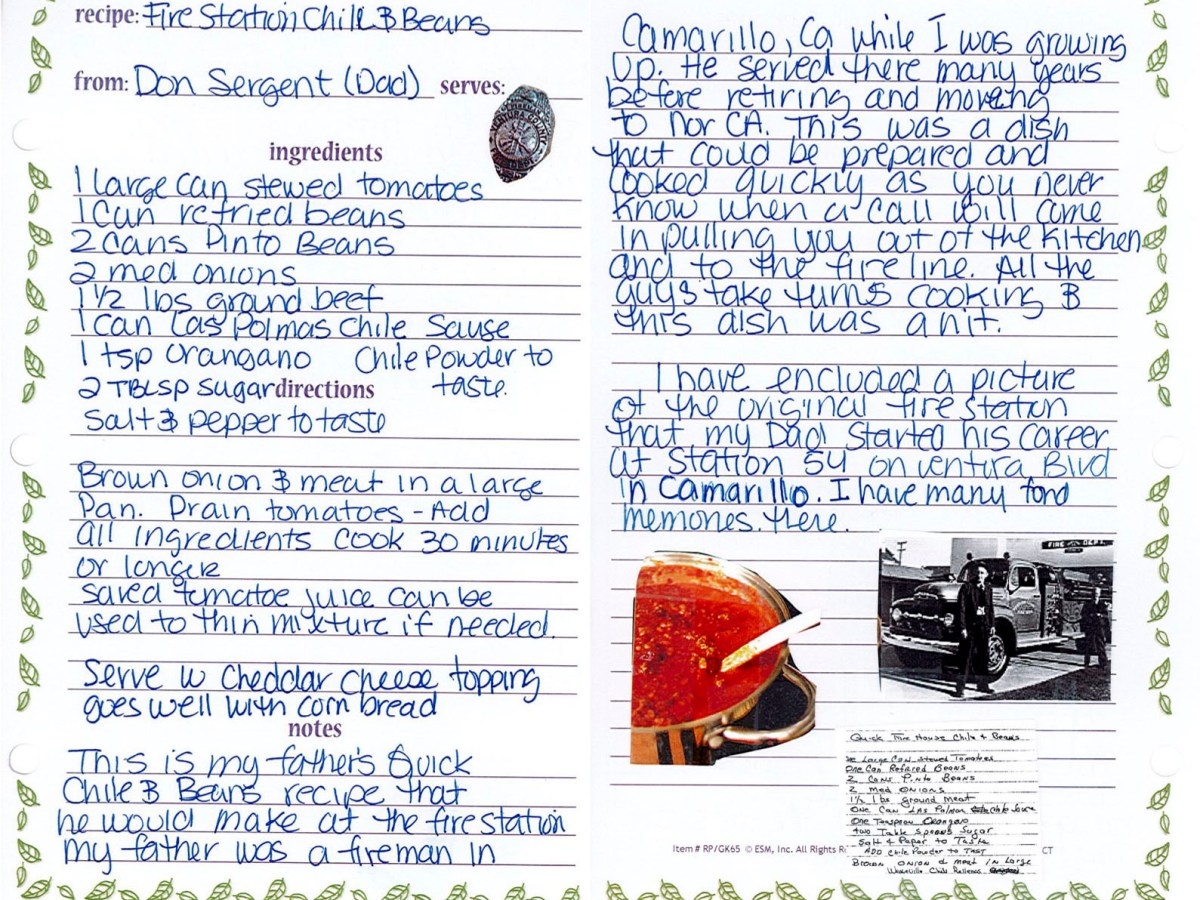 recipe: Fire Station Chile & Beans
from: Don Sergent (Dad) serves:
ingredients
1 large can stewed tomatoes
1 Can refried beans
2 Cans Pinto Beans
2 med onions
1 1/2 lbs ground beef
1 can Las Polmas Chile Sause
1 tsp orangano Chile Powder to
2 TBLSP sugar directions taste.
Salt & pepper to taste
Brown onion & meat in a large
Pan. Drain tomatoes - Add
all ingredients cook 30 minutes
or longer
saved tomatoe juice can be
used to thin mixture if needed.
Serve w cheddar cheese topping
goes well with corn bread
notes
This is my father's Quick
Chile & Beans recipe that
he would make at the fire station
my father was a fireman in
Camarillo, Ca while I was growing
up. He served there many years
before retiring and moving
to Nor CA. This was a dish
that could be prepared and
cooked quickly as you never
know when a call will come
in pulling you out of the kitchen
and to the fire line. All the
guys take turns cooking &
this dish was a hit.
I have encluded a picture
of the original fire station
that my Dad started his career
at Station 54 on ventura Blvd
in Camarillo. I have many fond
memories there.
FIRE DEPT.
Quick Fire House Chile & Beans
Large Can Stewed Tomatoes
One Can Refried Beans
2 Cans Pinto Beans
2 med onions
1 1/2 lbs ground meat
One Can Las Palmas Chile Sauce
One Teaspoon Orangano
two Table Spoons Sugar
Salt & Peper to Taste
ADD Chile Powder to Tast
Brown onion & meat in Large
Item # RP/GK65 © ESM, Inc. All Rights CT